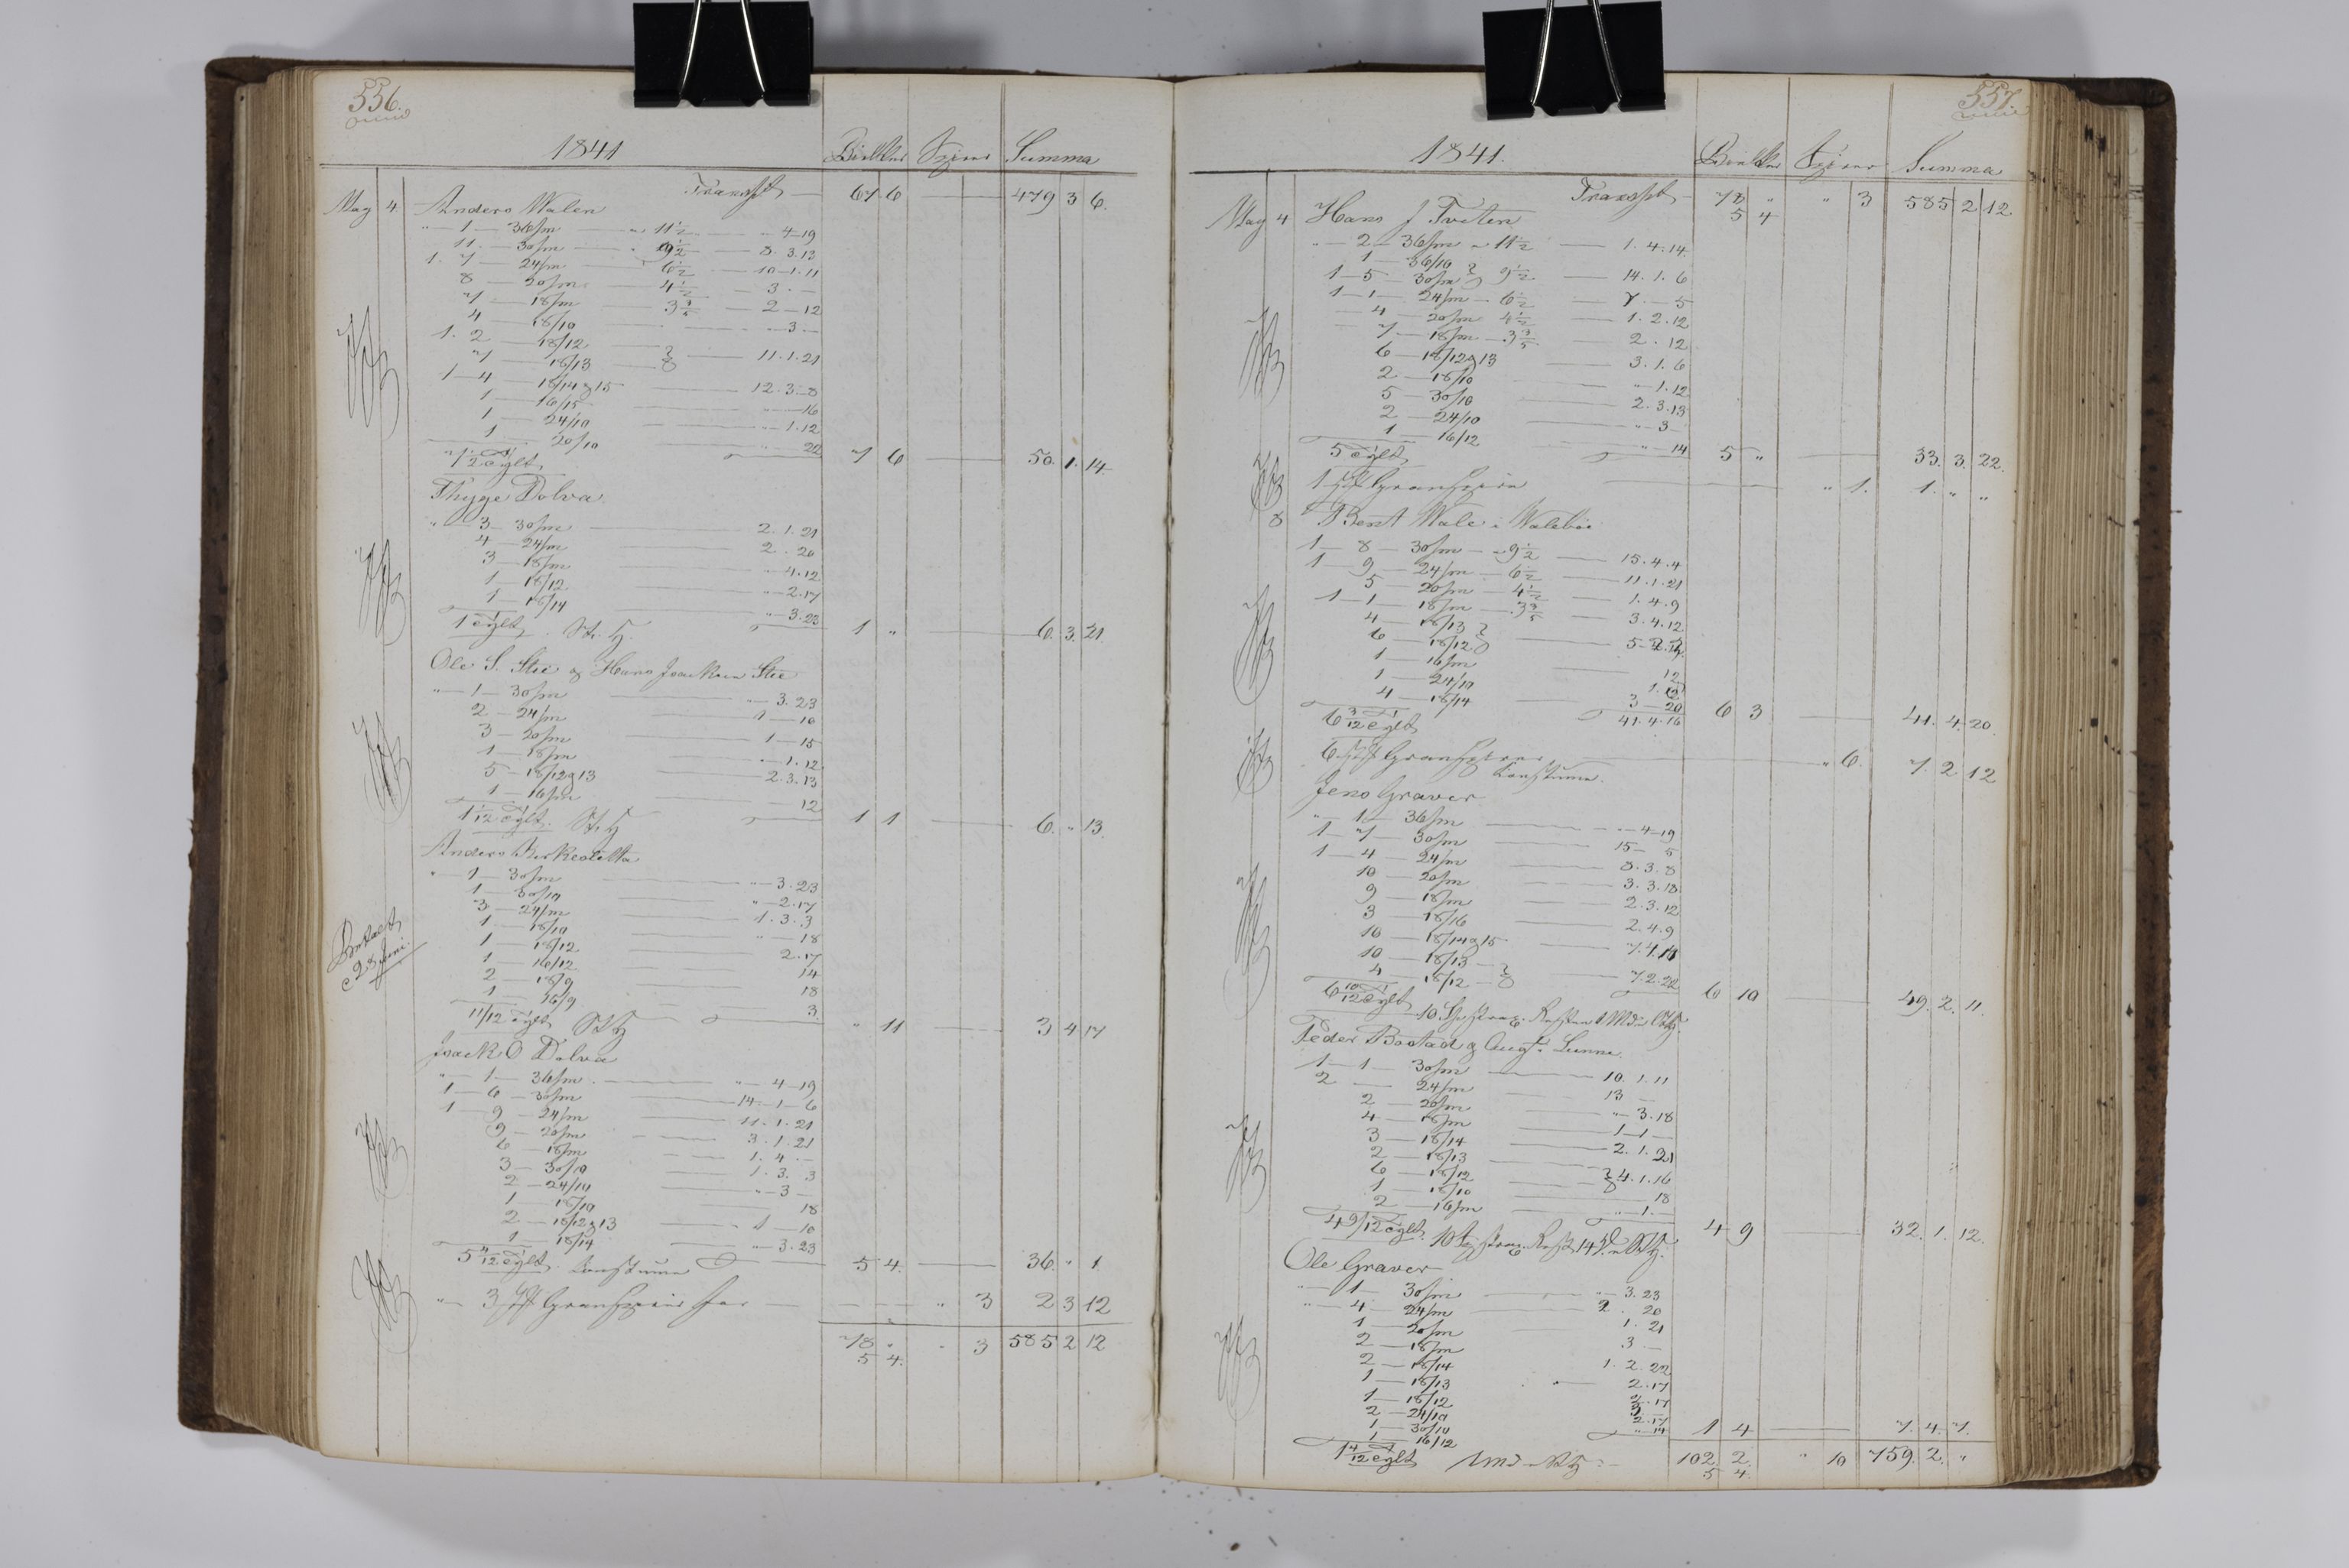 556.
1841 Bielker Spirer Summa
Transpt — 67 6 — 479 3 6.
May 4 Anders Walen
" — 1 — 36/m — " 11 1/2 — " 4 — 19
11. — 30/m — " 9 1/2 — 8. 3. 13
1. 7 — 24/m — 6 1/2 — 10 - 1. 11
8 — 20/m — 4 1/2 — 3 . —
7 — 18/m — 3 3/5 — 2 — 12
4 — 18/10 — " — 3 —
1. 2 — 18/12
7 — 18/13 — 11. 1. 21
1 — 4 — 18/14 & 15 — 12. 3 — 8
1 — 16/15 — " — 16
1 — 24/10 — " — 1. 12
1 — 20/10 — 22
7 1/2 Tylt 7 6 — 50. 1. 14
Thyge Dolva
" — 3 — 30/m — 2. 1. 21
4 — 24/m — 2 . 20
3 — 18/m — " — 4. 12
1 — 18/12 — " — 2. 17
1 — 18/14 — " — 3. 23
1 Tylt. 1 " — 6. 3. 21.
Ole S. Stie & Hans Isaksen Stie
" — 1 — 30/m — " — 3. 23
2 — 24/m — 1 — 10
3 — 20/m — 1 — 15
1 — 18/m — " — 1. 12
5 — 18/12 & 13 — 2. 3. 13
1 — 16/m — 12
1 1/12 Tylt. 1 1 — 6. " 13.
Anders
" — 1 — 30/m — " — 3. 23
1 — 30/10 — " — 2. 17
3 — 24/m — 1. 3. 3
1 — 18/10 — " — 18
1 — 18/12 — 2. 17
1 — 16/12 — 14
2 — 18/9 — 18
1 — 16/9 — 3.
11/12 Tylt " 11 — 3 4 17
Isack O Dolva
" — 1 — 36/m — " — 4 — 19
1 — 6 — 30/m — 14 — 1 — 6
1 — 9 — 24/m — 11. 1. 21
9 — 20/m — 3. 1. 21
6 — 18/m — 1. 4 —
3 — 30/10 — 1. 3. 3
2 — 24/10 — " — 3 —
1 — 18/10 — 18
2 — 18/12 & 13 — 1 — 10
1 — 18/14 — " — 3. 23
5 4/12 Tylt. 5 4. — 36. " 1
" — 3 — " 3 2 3 12
78 " " 3 585 2 12
5 4.
557.
1841. Bielker Spirer Summa
Transpt — 78 " " 3 585 2 12
5 4
May 4 Hans J Tveten
" — 2 — 36/m — 11 1/2 — 1. 4. 14
1 — 36/10
1 — 5 — 30/m 9 1/2 — 14. 1. 6
1 — 1 — 24/m — 6 1/2 — 7 — 5
4 — 20/m 4 1/2 — 1. 2. 12
7 — 18/m — 3 3/5 — 2 . 12
6 — 18/12 & 13 — 3. 1. 6
2 — 18/10 — " 1. 12
5 — 30/10 — 2. 3. 13
2 — 24/10 — " 3 —
1 — 16/12 — " — 14
5 Tylt 5 " — 33. 3. 22.
1 — " 1. 1. " "
8 Bent Wale i Walebøe
1 — 8 — 30/m — " 9 1/2 — 15. 4. 4
1 — 9 — 24/m — 6 1/2 — 11. 1. 21
5 — 20/m — 4 1/2 — 1. 4. 9
1 — 1 — 18/m — 3 3/5 — 3. 4. 12
4 — 18/13
6 — 18/12
1 — 16/m — 12
1 — 24/10
4 — 18/14 — 3 — 20
6 3/12 Tylt 41. 4. 16 6 3 — 41. 4. 20.
6 — " 6. 7. 2 12
Jens Graver
" — 1 — 36/m — " — 4 — 19
1 — 7 — 30/m — 15 — 5
1 — 4 — 24/m — 8. 3. 8
10 — 20/m — 3. 3. 18
9 — 18/m — 2. 3. 12
3 — 18/16 — 2. 4. 9
10 — 18/14 & 15
10 — 18/13
4 — 18/12 — 7. 2. 22
6 10/12 Tylt 6 10 — 49. 2. 11.
Peder Bostad & Lunne
1 — 1 — 30/m — 10. 1. 11
2 — 24/m — 13 —
2 — 20/m — " — 3. 18
4 — 18/m — 1 — 1 —
3 — 18/14 — 2. 1. 21
2 — 18/13
6 — 18/12 — 4. 1. 16
1 — 18/10 — 18
2 — 16/m — " — 1. —
4 9/12 Tylt. 4 9 — 32. 1. 12.
Ole Graver
" — 1 — 30/m — " — 3. 23
" — 4 — 24/m — 2 . 20
1 — 20/m — 1. 21
2 — 18/m — 3 —
2 — 18/14 — 1. 2. 22
1 — 18/13 — 2. 17
1 — 18/12 — 2. 17
2 — 24/10 — 3 —
1 — 30/10 — 2. 17
1 — 16/12 — " — 14
1 4/12 Tylt 1 4 — 7. 4. 7.
102 2. " 10 759. 2. "
5 4.